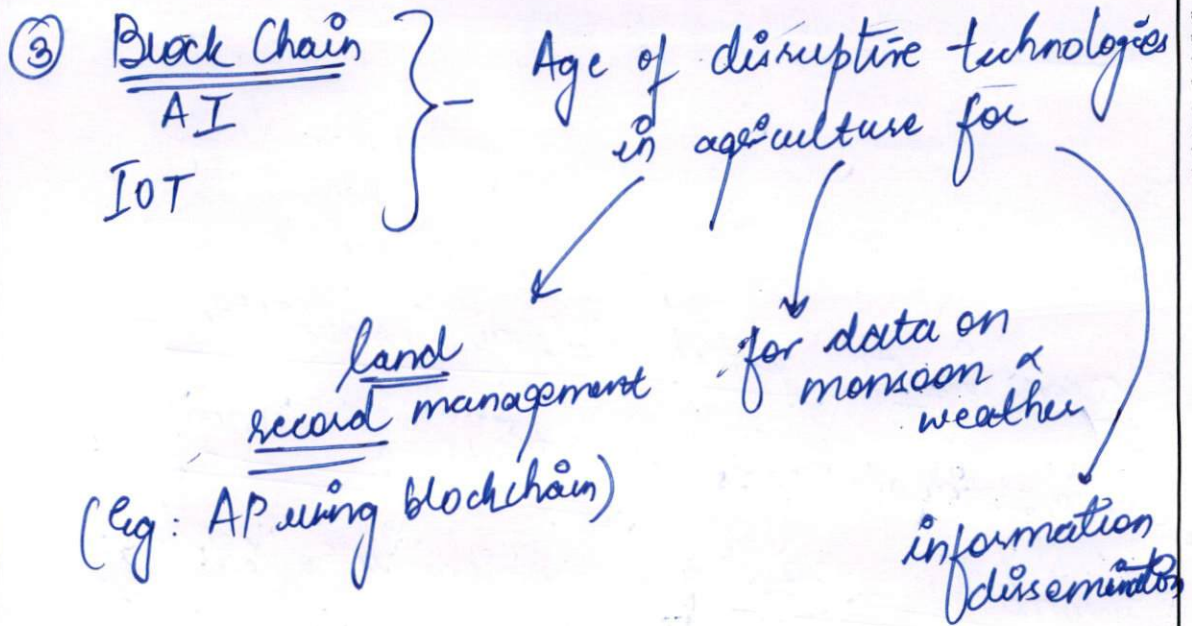 ③ Block Chain
AI
IOT
Age of disruptive technologies
in agriculture for
land
record management
(Eg: AP using blockchain)
for data on
monsoon &
weather
information
dissemination